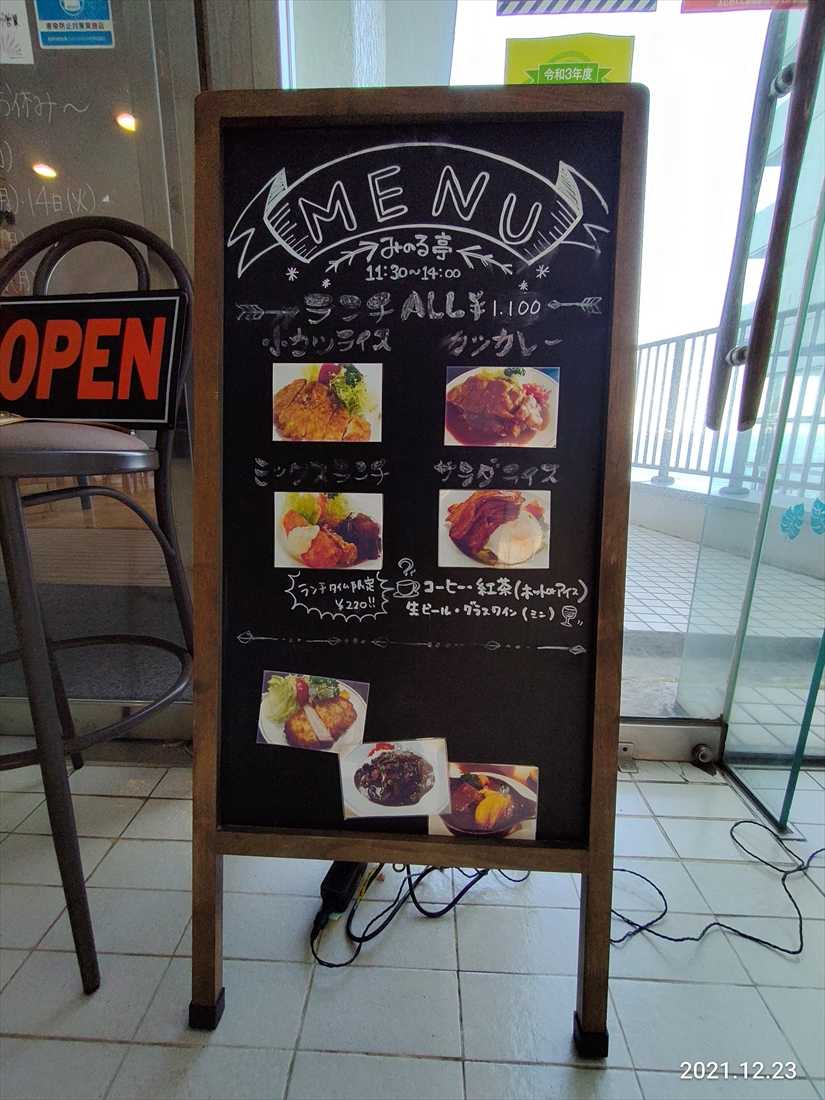 令和3年度
お休み〜
14日(火)
MENU
みのる亭
11:30〜14:00
ランチ ALL ¥1.100
小カツライス
カツカレー
OPEN
ミックスランチ
サラダライス
ランチタイム限定
¥220!!
コーヒー・紅茶(ホットorアイス)
生ビール・グラスワイン(ミニ)
2021.12.23